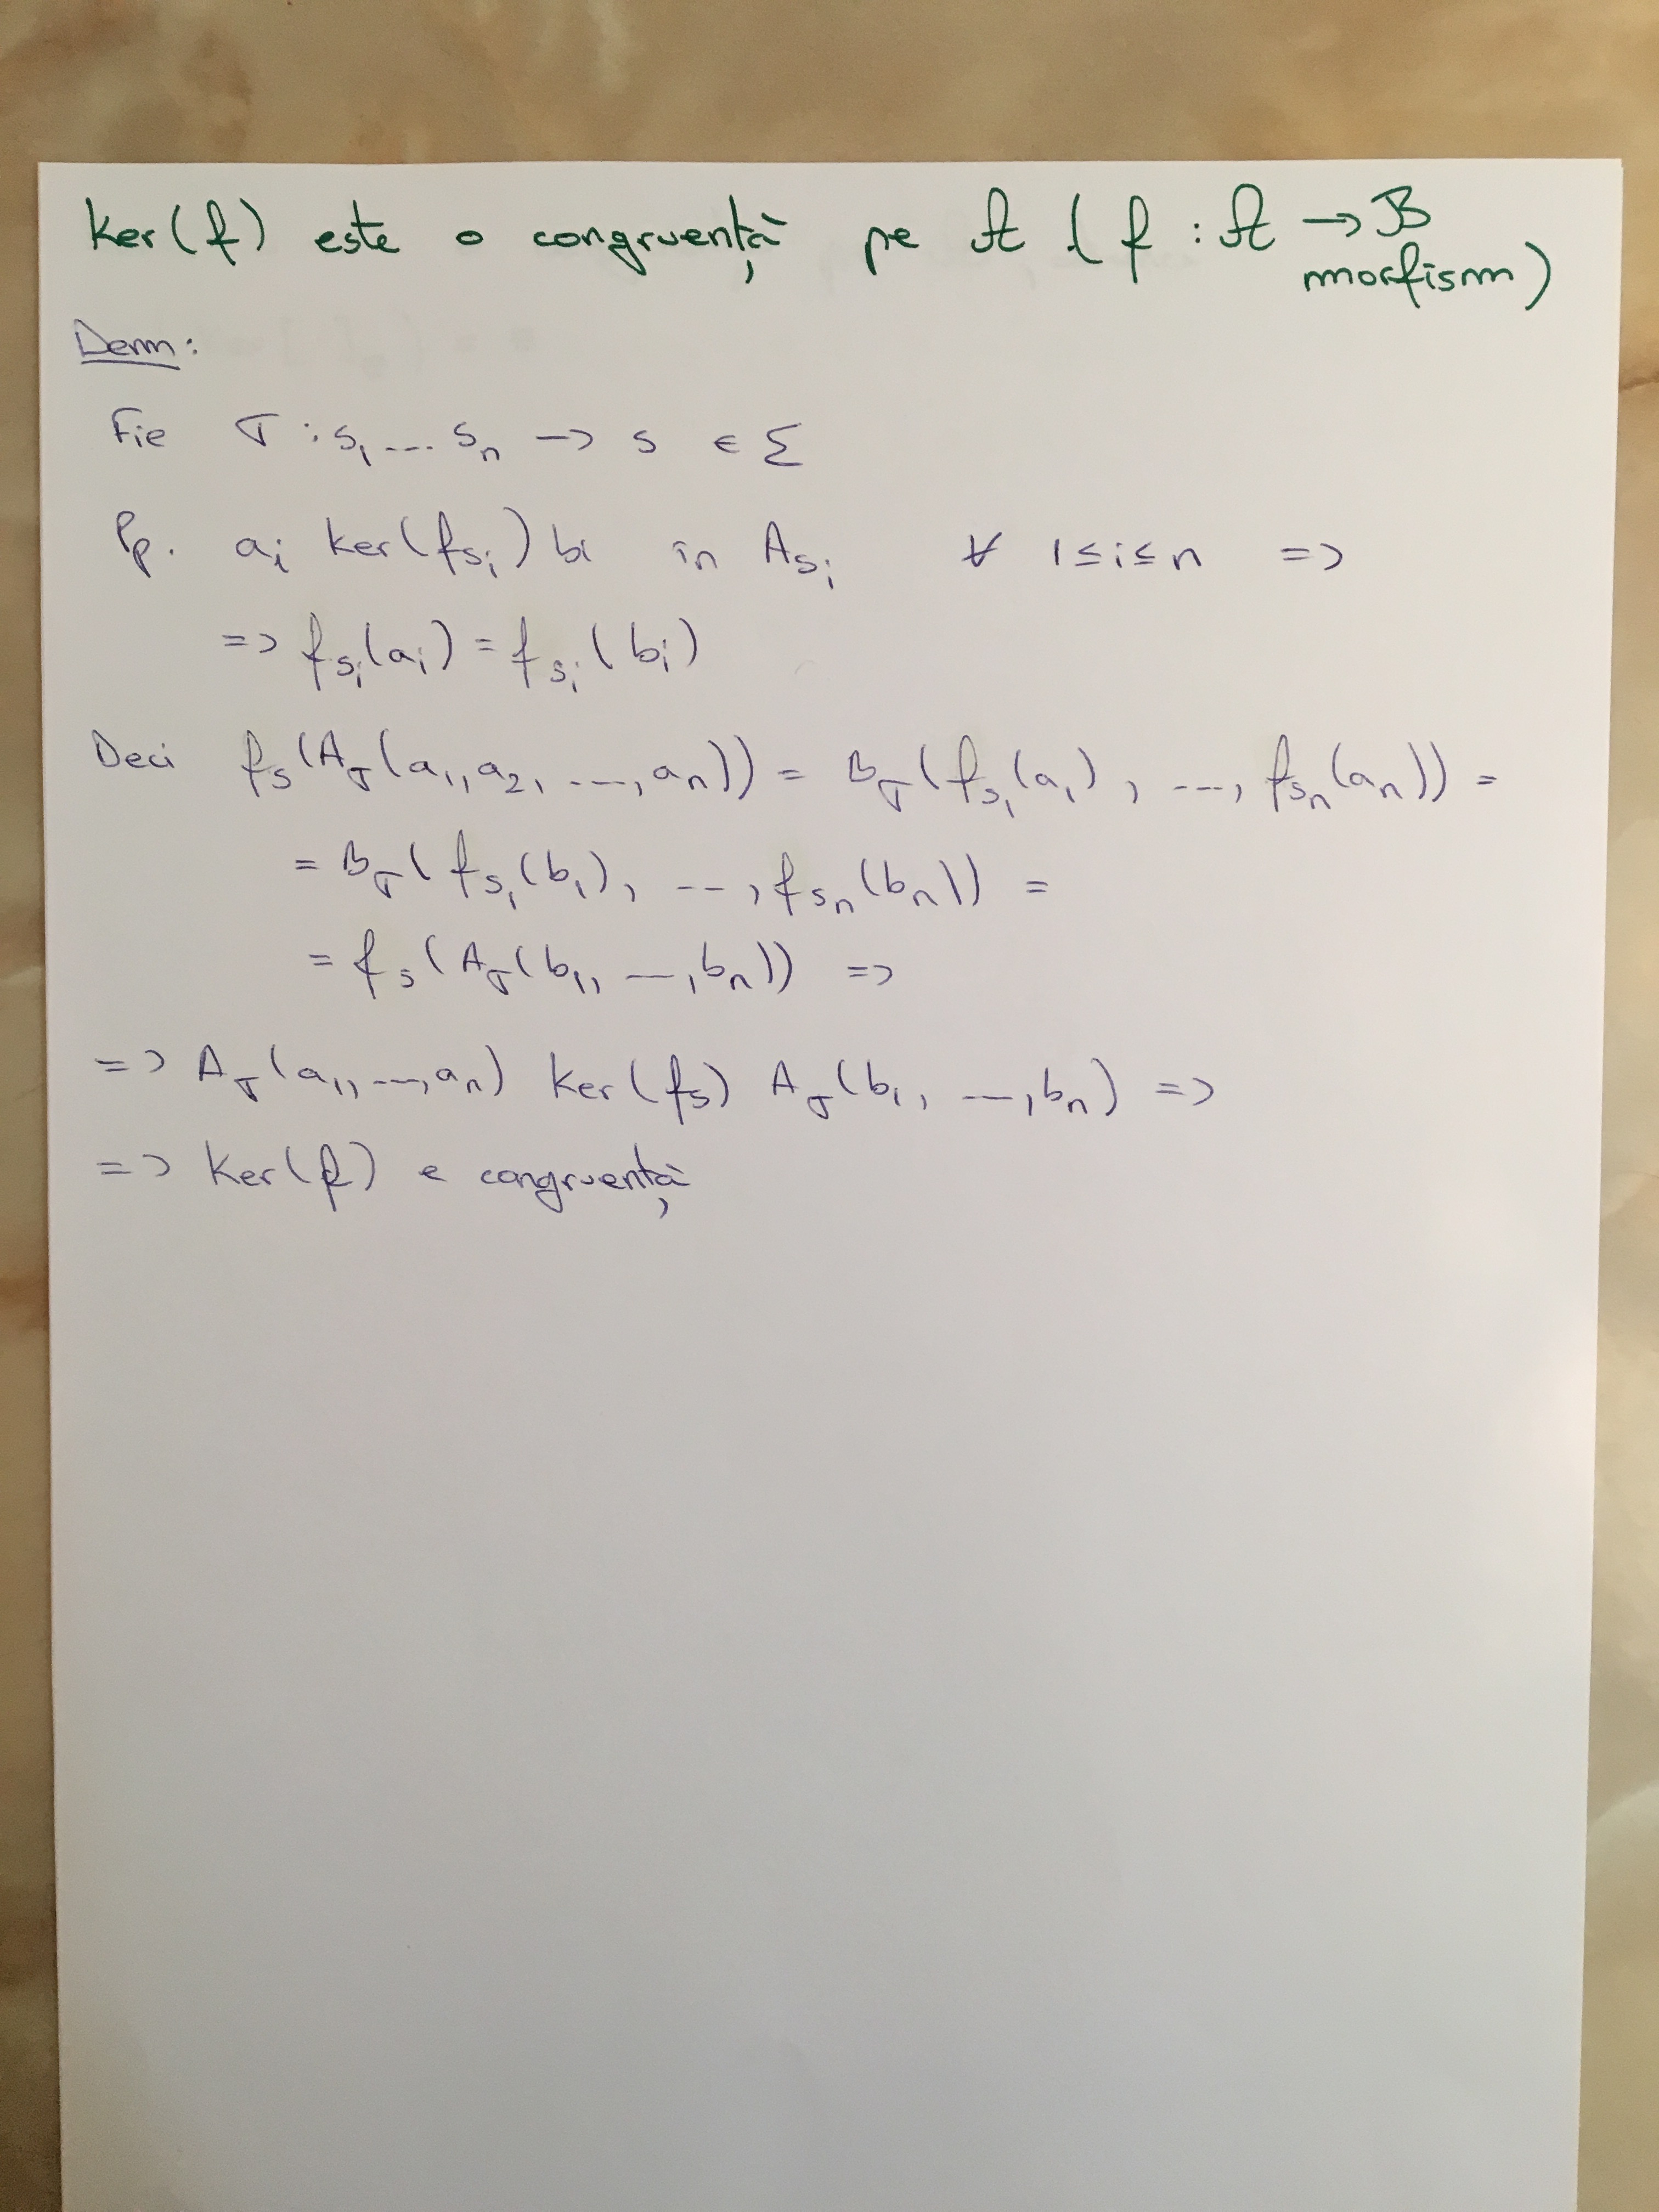 Ker(f) este o congruență pe 𝒜 ( f : 𝒜 → ℬ
morfism)
Dem:
Fie σ : s₁ ... sₙ → s ∈ Σ
Pp. aᵢ Ker(f_{sᵢ}) bᵢ în A_{sᵢ} ∀ 1≤i≤n =>
=> f_{sᵢ}(aᵢ) = f_{sᵢ}(bᵢ)
Deci f_s(A_σ(a₁, a₂, ..., aₙ)) = B_σ(f_{s₁}(a₁), ..., f_{sₙ}(aₙ)) =
= B_σ(f_{s₁}(b₁), ..., f_{sₙ}(bₙ)) =
= f_s(A_σ(b₁, ..., bₙ)) =>
=> A_σ(a₁, ..., aₙ) Ker(f_s) A_σ(b₁, ..., bₙ) =>
=> Ker(f) e congruență